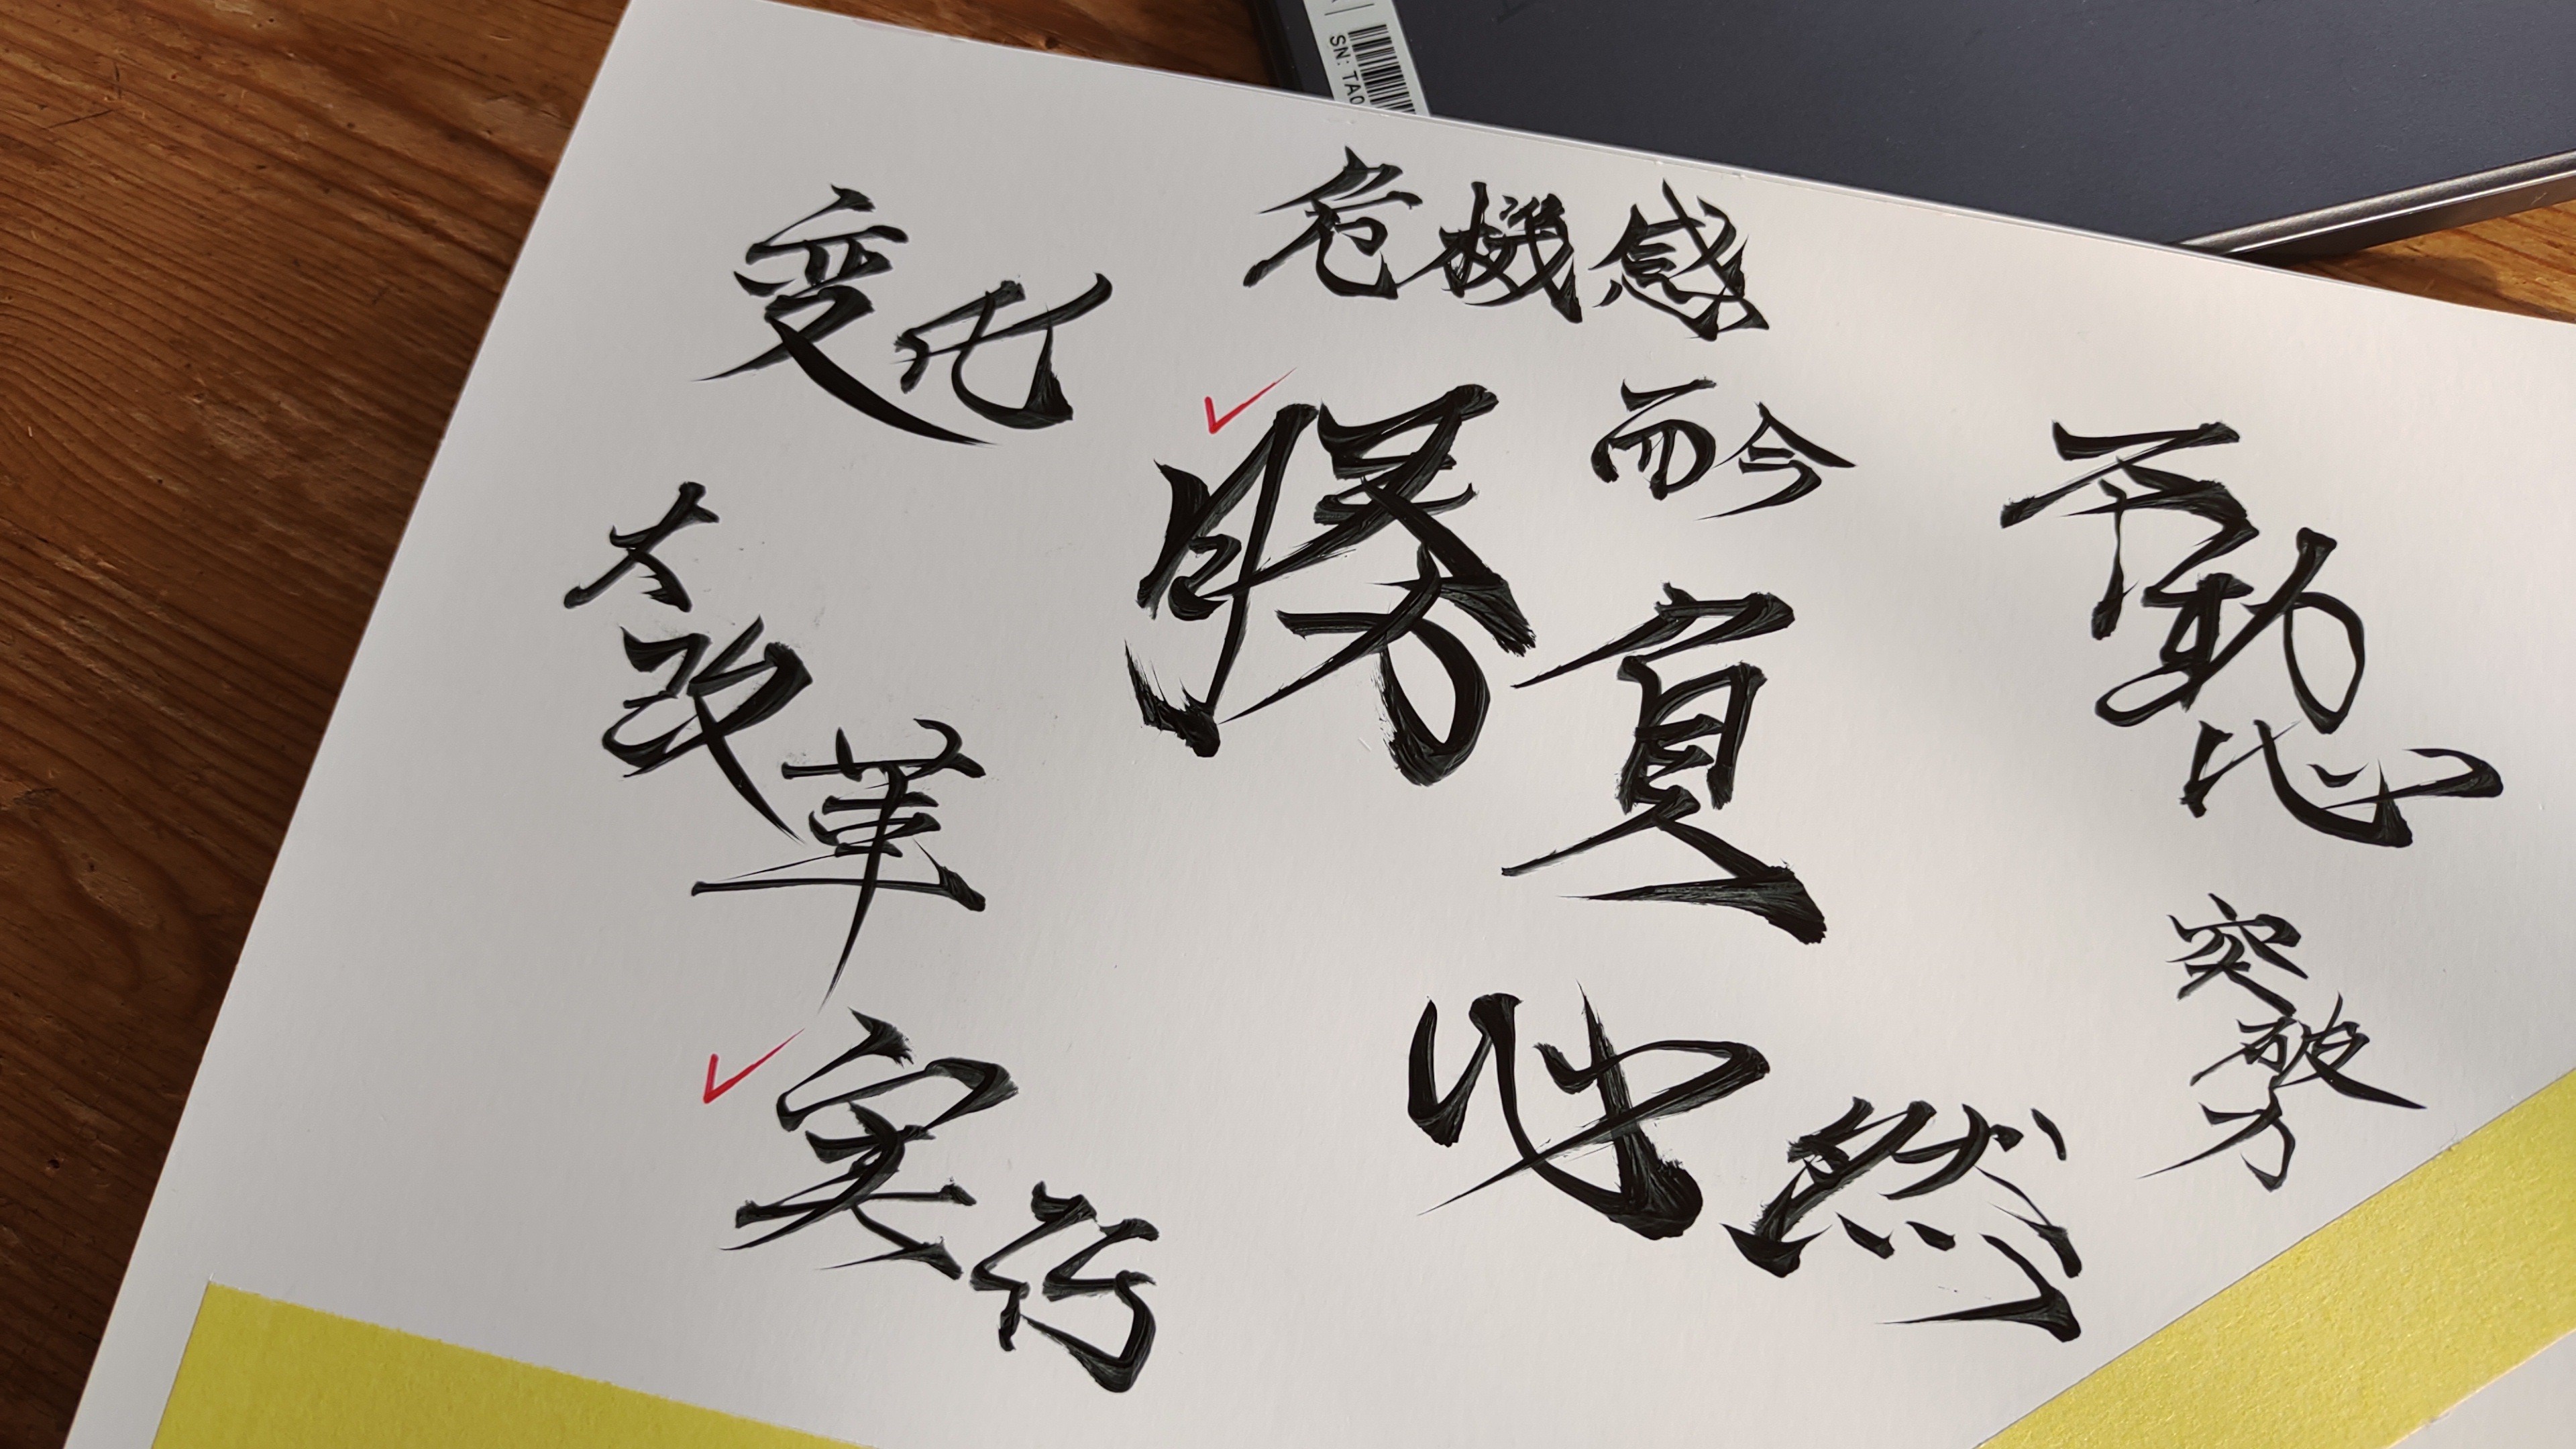 SN: TA0
危機感
変化
而今
勝負
不動心
大改革
突破力
実行
必然